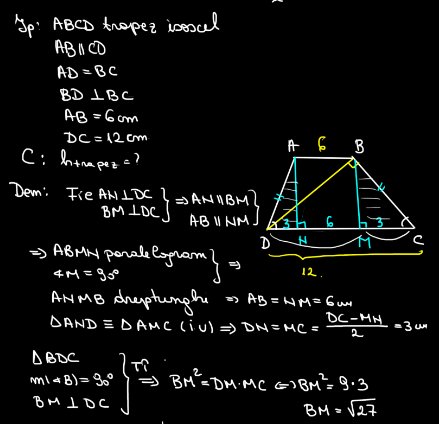 Jp: ABCD trapez isoscel
AB∥CD
AD = BC
BD ⊥ BC
AB = 6cm
DC = 12cm
C: htrapez = ?
Dem: Fie AN⊥DC
BM⊥DC } ⇒ AN∥BM
AB∥NM }
⇒ ABMN paralelogram
∢M = 90° } ⇒
ANMB dreptunghi ⇒ AB = NM = 6cm
ΔAND ≡ ΔAMC (iu) ⇒ DN = MC = (DC - MN)/2 = 3cm
ΔBDC
m(∢B) = 90°
BM ⊥ DC } TÎ ⇒ BM² = DM·MC ⇔ BM² = 9·3
BM = √27
A 6 B
3 6 3
D N M C
12.